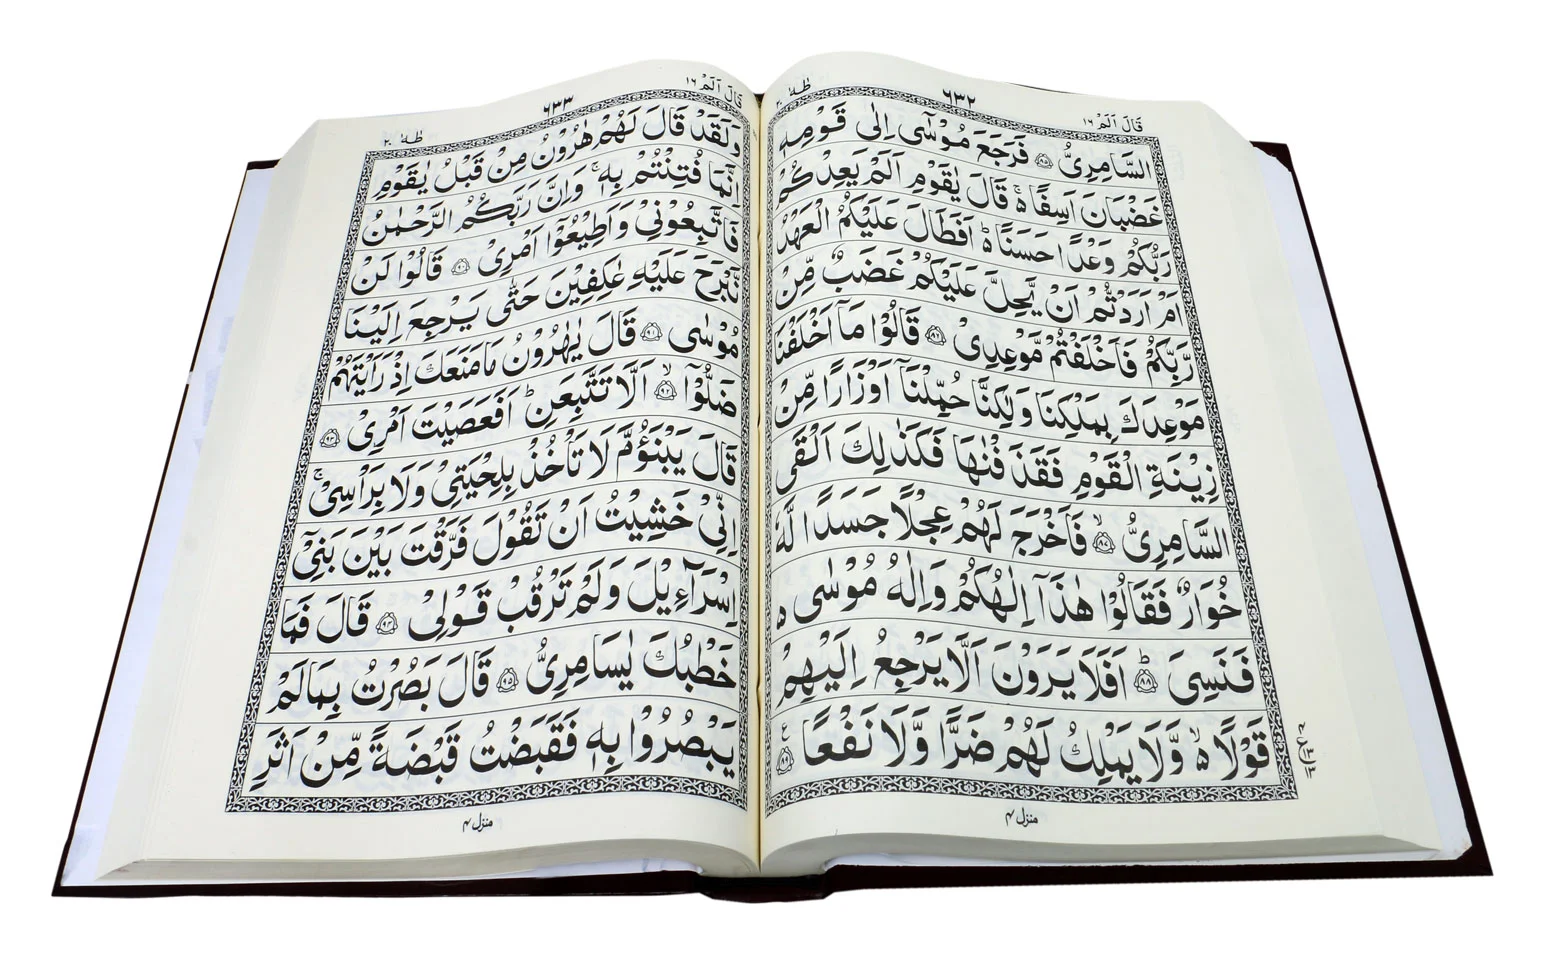 طٰهٰ ٢٠
٦٣٢
قَالَ اَلَمْ ١٦
السَّامِرِيُّ ﴿٨٥﴾ فَرَجَعَ مُوْسٰٓى اِلٰى قَوْمِهٖ
غَضْبَانَ اَسِفًا ەۚ قَالَ يٰقَوْمِ اَلَمْ يَعِدْكُمْ
رَبُّكُمْ وَعْدًا حَسَنًا ەؕ اَفَطَالَ عَلَيْكُمُ الْعَهْدُ
اَمْ اَرَدْتُّمْ اَنْ يَّحِلَّ عَلَيْكُمْ غَضَبٌ مِّنْ
رَّبِّكُمْ فَاَخْلَفْتُمْ مَّوْعِدِىْ ﴿٨٦﴾ قَالُوْا مَاۤ اَخْلَفْنَا
مَوْعِدَكَ بِمَلْكِنَا وَلٰكِنَّا حُمِّلْنَاۤ اَوْزَارًا مِّنْ
زِيْنَةِ الْقَوْمِ فَقَذَفْنٰهَا فَكَذٰلِكَ اَلْقَى
السَّامِرِىُّ ۙ﴿٨٧﴾ فَاَخْرَجَ لَهُمْ عِجْلًا جَسَدًا لَّهٗ
خُوَارٌ فَقَالُوْا هٰذَاۤ اِلٰهُكُمْ وَاِلٰهُ مُوْسٰى ە
فَنَسِىَ ؕ﴿٨٨﴾ اَفَلَا يَرَوْنَ اَلَّا يَرْجِعُ اِلَيْهِمْ
قَوْلًا ەۙ وَّلَا يَمْلِكُ لَهُمْ ضَرًّا وَّلَا نَفْعًا ﴿٨٩﴾ ع
منزل ٤
قَالَ اَلَمْ ١٦
٦٣٣
طٰهٰ ٢٠
وَلَقَدْ قَالَ لَهُمْ هٰرُوْنُ مِنْ قَبْلُ يٰقَوْمِ
اِنَّمَا فُتِنْتُمْ بِهٖ ۚ وَاِنَّ رَبَّكُمُ الرَّحْمٰنُ
فَاتَّبِعُوْنِىْ وَاَطِيْعُوْۤا اَمْرِىْ ﴿٩٠﴾ قَالُوْا لَنْ
نَّبْرَحَ عَلَيْهِ عٰكِفِيْنَ حَتّٰى يَرْجِعَ اِلَيْنَا
مُوْسٰى ﴿٩١﴾ قَالَ يٰهٰرُوْنُ مَا مَنَعَكَ اِذْ رَاَيْتَهُمْ
ضَلُّوْۤا ۙ﴿٩٢﴾ اَلَّا تَتَّبِعَنِ ؕ اَفَعَصَيْتَ اَمْرِىْ ﴿٩٣﴾
قَالَ يَبْنَؤُمَّ لَا تَاْخُذْ بِلِحْيَتِىْ وَلَا بِرَاْسِىْ ۚ
اِنِّىْ خَشِيْتُ اَنْ تَقُوْلَ فَرَّقْتَ بَيْنَ بَنِىْۤ
اِسْرَآءِيْلَ وَلَمْ تَرْقُبْ قَوْلِىْ ﴿٩٤﴾ قَالَ فَمَا
خَطْبُكَ يٰسَامِرِىُّ ﴿٩٥﴾ قَالَ بَصُرْتُ بِمَا لَمْ
يَبْصُرُوْا بِهٖ فَقَبَضْتُ قَبْضَةً مِّنْ اَثَرِ
منزل ٤